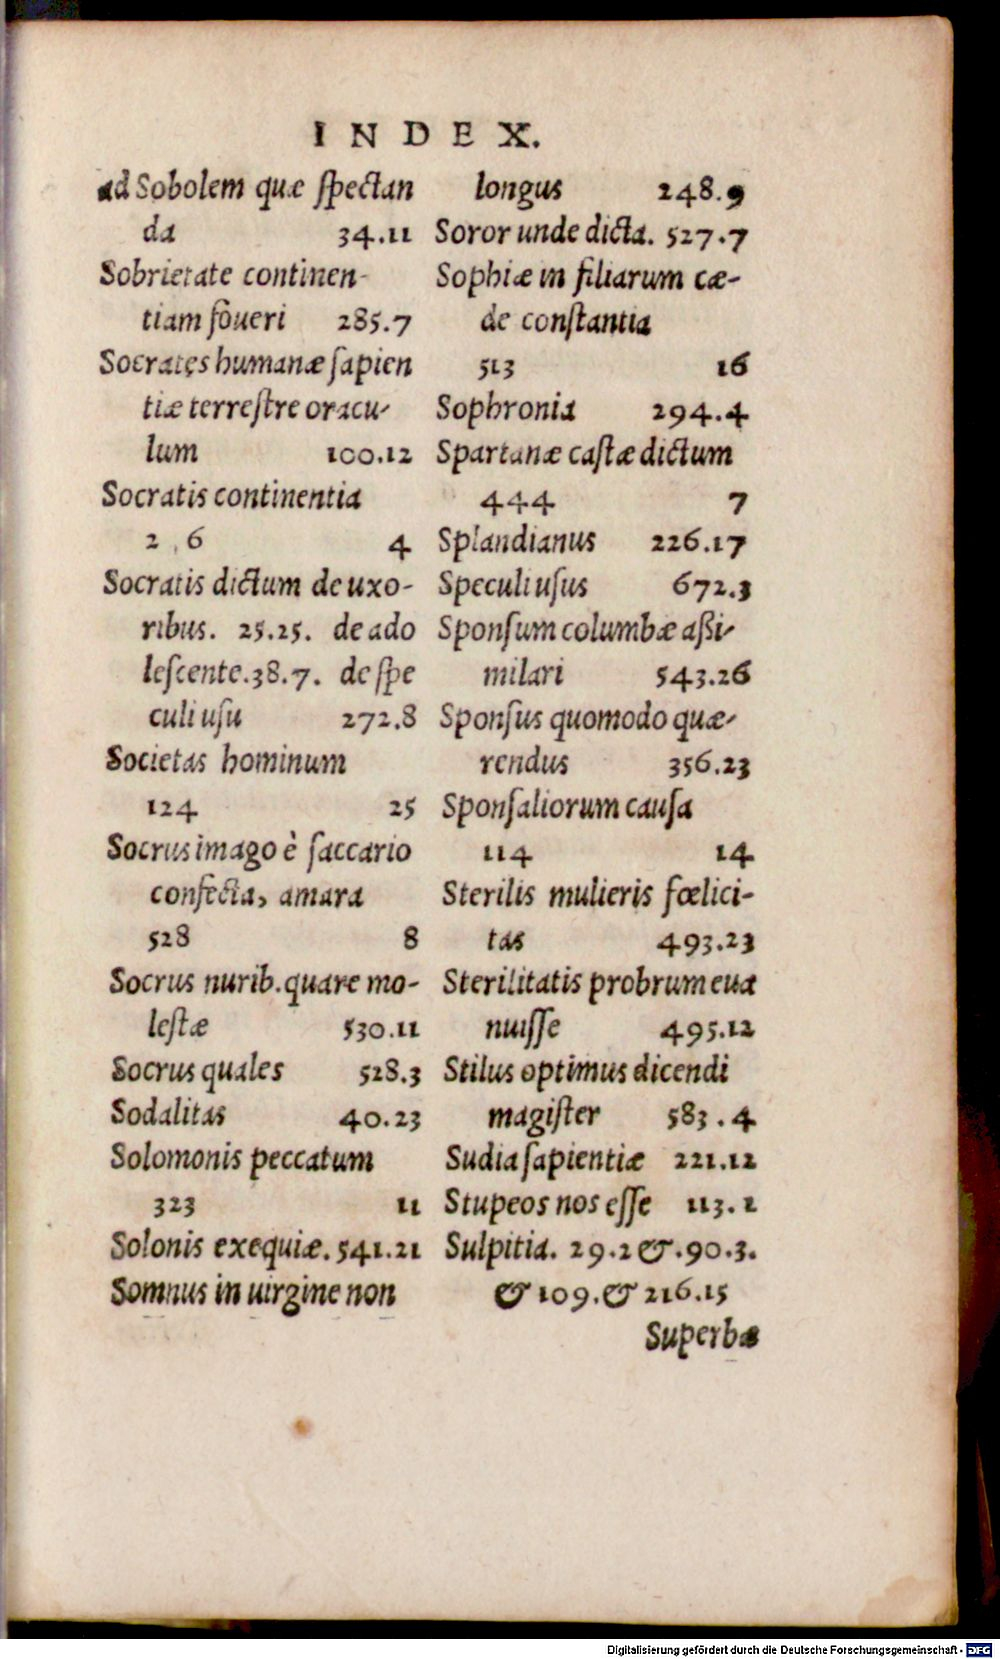 INDEX.
ad Sobolem quæ spectan
da 34.11
Sobrietate continen-
tiam foueri 285.7
Socrates humanæ sapien
tiæ terrestre oracu-
lum 100.12
Socratis continentia
2 6 4
Socratis dictum de uxo-
ribus. 25.25. de ado
lescente.38.7. de spe
culi usu 272.8
Societas hominum
124 25
Socrus imago è saccario
confecta, amara
528 8
Socrus nurib. quare mo-
lestæ 530.11
Socrus quales 528.3
Sodalitas 40.23
Solomonis peccatum
323 11
Solonis exequiæ. 541.21
Somnus in uirgine non
longus 248.9
Soror unde dicta. 527.7
Sophiæ in filiarum cæ-
de constantia
513 16
Sophronia 294.4
Spartanæ castæ dictum
444 7
Splandianus 226.17
Speculi usus 672.3
Sponsum columbæ aßi-
milari 543.26
Sponsus quomodo quæ-
rendus 356.23
Sponsaliorum causa
114 14
Sterilis mulieris fœlici-
tas 493.23
Sterilitatis probrum eua
nuisse 495.12
Stilus optimus dicendi
magister 583.4
Sudia sapientiæ 221.12
Stupeos nos esse 113.1
Sulpitia. 29.2 &.90.3.
& 109.& 216.15
Superbæ
Digitalisierung gefördert durch die Deutsche Forschungsgemeinschaft - DFG